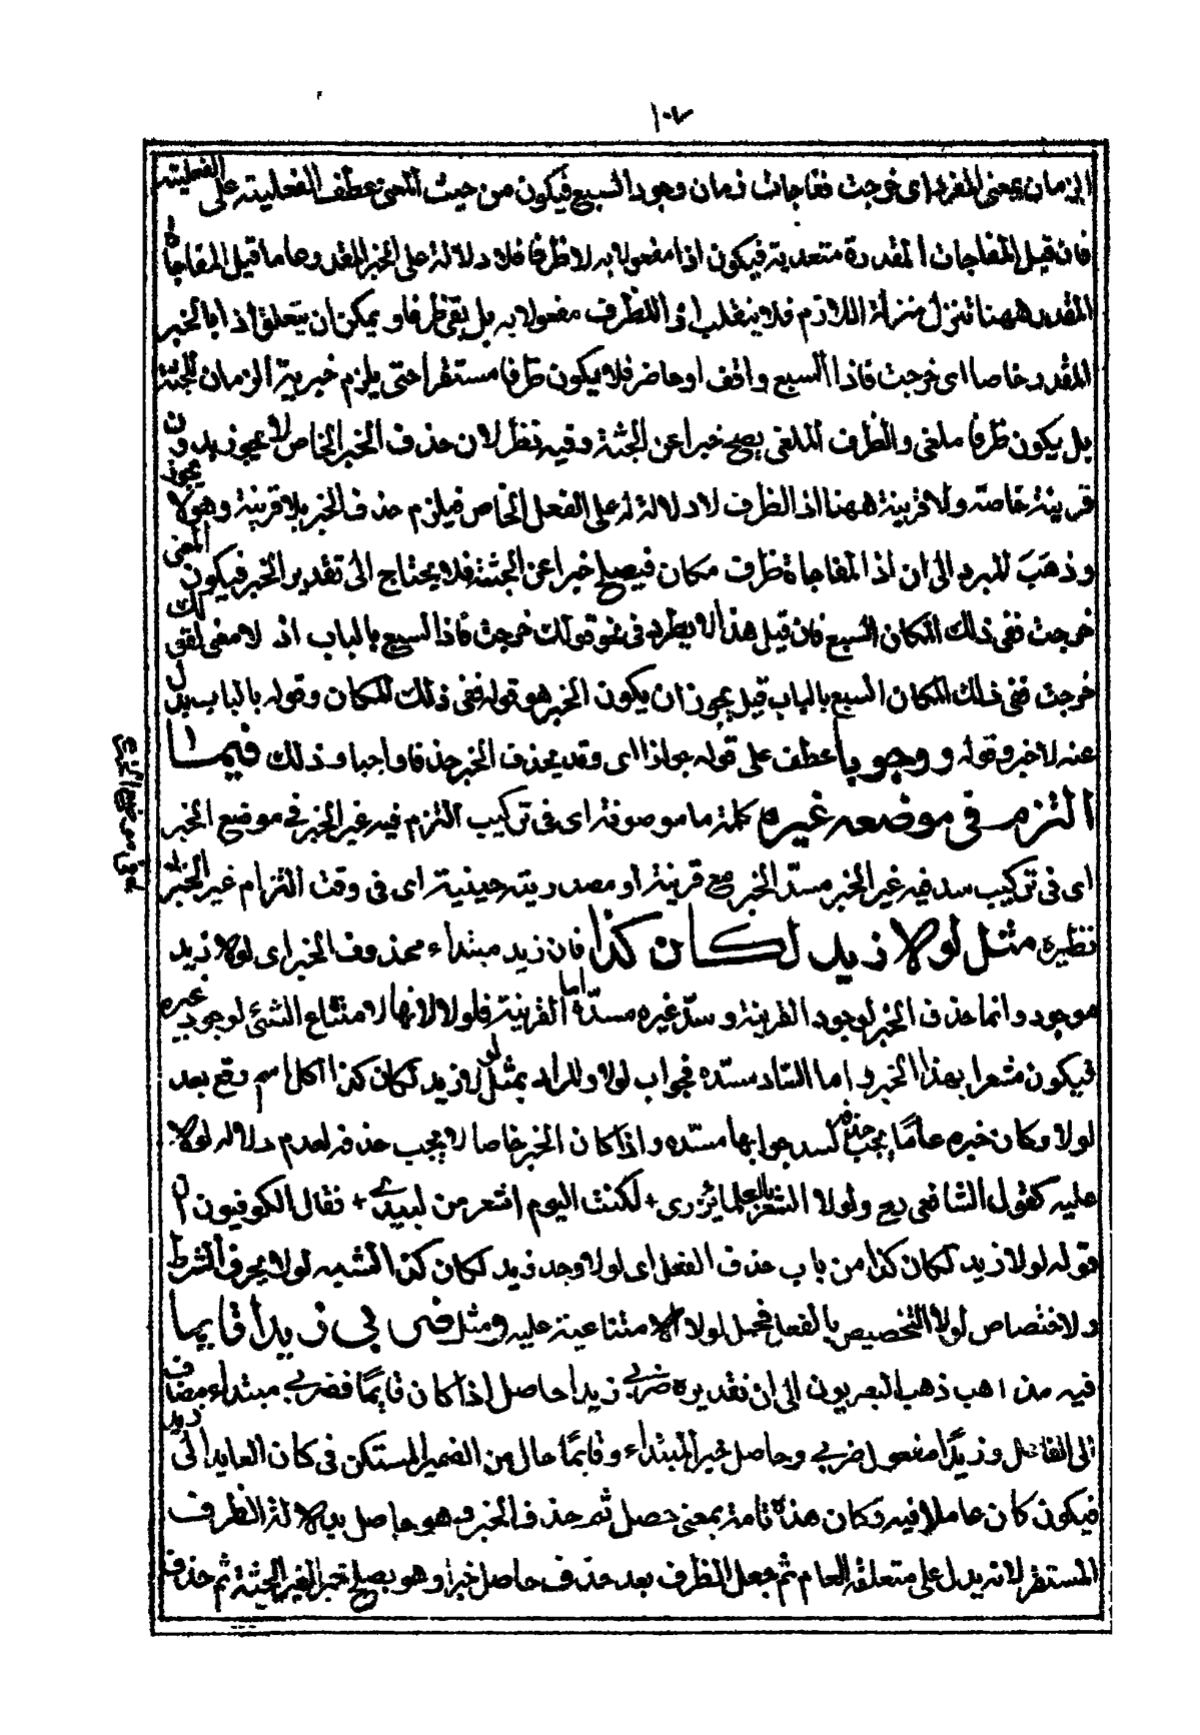 ١٠٧
الزمان بمعنى المفرد اى خرجت ففاجات زمان وجود السبع فيكون من حيث المعنى عطف الفعلية على الفعلية
فان قيل المفاجات المقدرة متعدية فيكون اذا مفعولا به لا ظرفا فلا دلالة على الخبر المقدر وهاما قيل المفاجاة
المقدر ههنا تنزل منزلة اللازم فلا ينقلب اذ الظرف مفعولا به بل بقى ظرفا و يمكن ان يتعلق اذا بالخبر
المقدر خاصا اى خرجت فاذا السبع واقف او حاضر فلا يكون ظرفا مستقرا حتى يلزم خبرية الزمان للجثة
بل يكون ظرفا ملغى والظرف الملغى يصح خبرا عن الجثة وفيه نظر لان حذف الخبر الخاص لا يجوز بدون
قرينة خاصة ولا قرينة ههنا اذ الظرف لا دلالة له على الفعل الخاص فيلزم حذف الخبر بلا قرينة وهو لا يجوز
وذهب المبرد الى ان اذا المفاجاة ظرف مكان فيصلح خبرا عن الجثة فلا يحتاج الى تقدير الخبر فيكون المعنى
خرجت ففى ذلك المكان السبع فان قيل هذا لا يطرد فى نحو قولك خرجت فاذا السبع بالباب اذ لا معنى لقولك
خرجت ففى ذلك المكان السبع بالباب قيل يجوز ان يكون الخبر هو قوله ففى ذلك المكان وقوله بالباب بدل
عنه لا خبر وقوله ووجوبا عطف على قوله جوازا اى وقد يحذف الخبر حذفا واجبا وذلك فيما
التزم فى موضعه غيره كلمة ما موصوفة اى فى تركيب التزم فيه غير الخبر فى موضع الخبر
اى فى تركيب سد فيه غير الخبر مسد الخبر مع قرينة او مصدرية حينية اى فى وقت التزام غير الخبر
نظيره مثل لولا زيد لكان كذا فان زيد مبتداء محذوف الخبر اى لولا زيد
موجود وانما حذف الخبر لوجود القرينة وسد غيره مسده اما القرينة فلولا لانها لامتناع الشئ لوجود غيره
فيكون مشعرا بهذا الخبر واما الساد مسده فجواب لولا والمراد بمثل لولا زيد لكان كذا كل اسم وقع بعد
لولا وكان خبره عاما يجب حذفه لسد جوابها مسده واذا كان الخبر خاصا لا يجب حذفه لعدم دلالة لولا
عليه كقول الشافعى رح ولولا الشعر بالعلماء يزرى + لكنت اليوم اشعر من لبيد + فقال الكوفيون ان
قوله لولا زيد لكان كذا من باب حذف الفعل اى لولا وجد زيد لكان كذا لشبه لولا بحرف الشرط
ولاختصاص لولا التخصيص بالفعل فحمل لولا الامتناعية عليه ومثل ضربى زيدا قايما
فيه مذاهب ذهب البصريون الى ان تقديره ضربى زيدا حاصل اذا كان قايما فضربى مبتداء مضاف
الى الفاعل وزيدا مفعول ضربى وحاصل خبر المبتداء وقايما حال من الضمير المستكن فى كان العايد الى زيد
فيكون كان عاملا فيه وكان هذه تامة بمعنى حصل ثم حذف الخبر وهو حاصل بدلالة الظرف
المستقر لانه يدل على متعلقه العام ثم جعل الظرف بعد حذف حاصل خبرا وهو يصلح خبرا لغير الجثة ثم حذف